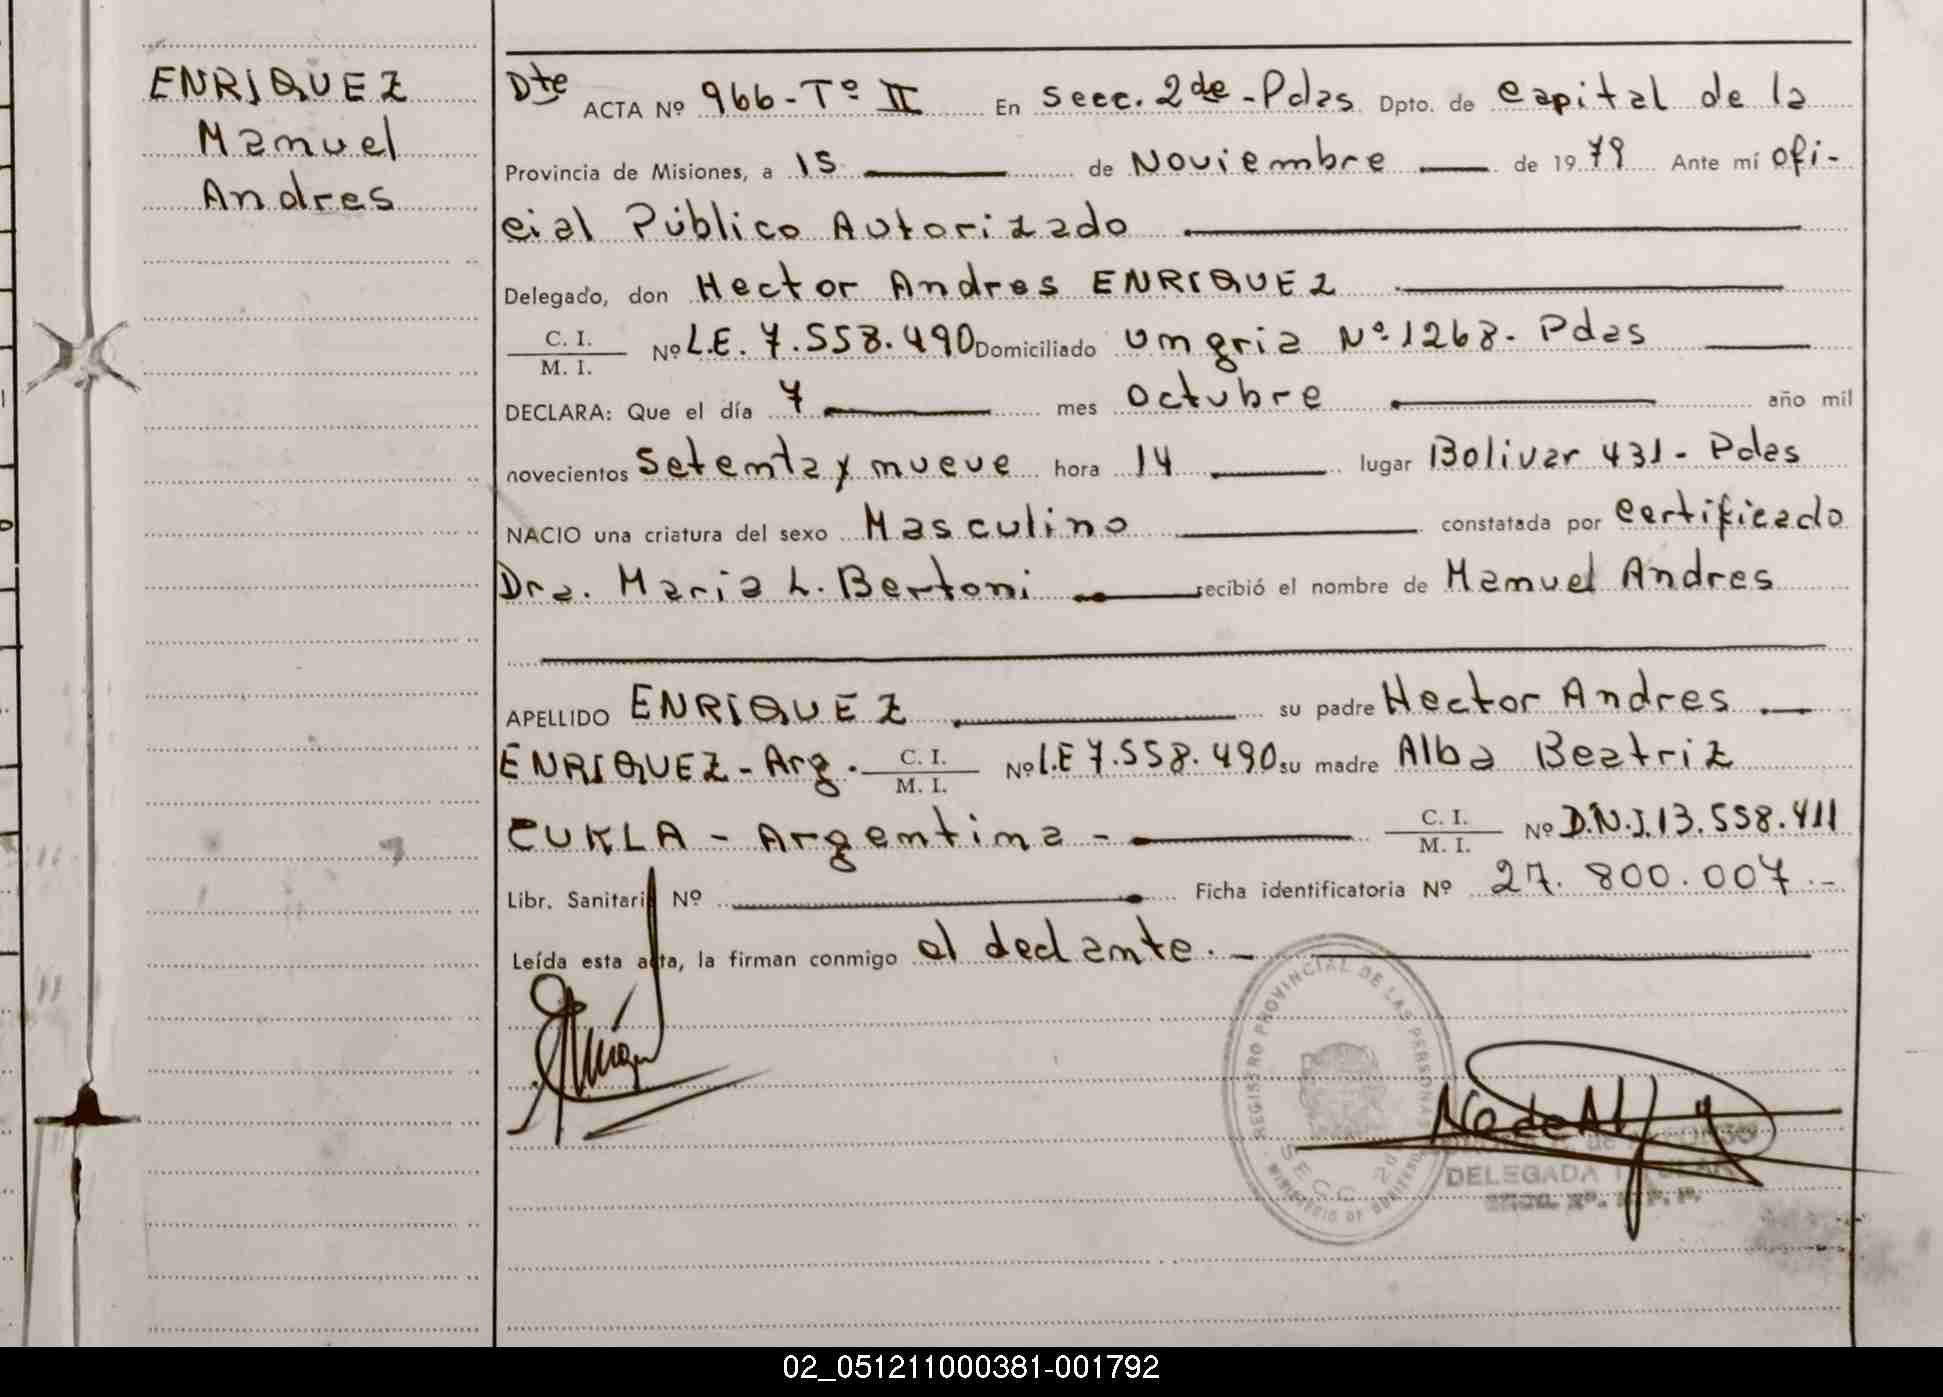 ENRIQUEZ
Manuel
Andres
Dte ACTA Nº 966-Tº II En secc. 2de-Pdas Dpto. de capital de la
Provincia de Misiones, a 15 de Noviembre de 1979 Ante mí ofi-
cial Público Autorizado
Delegado, don Hector Andres ENRIQUEZ
C. I.
M. I.
Nº L.E. 7.558.490 Domiciliado Ungria Nº 1268- Pdas
DECLARA: Que el día 7 mes octubre año mil
novecientos Setenta y nueve hora 14 lugar Bolivar 431- Pdas
NACIO una criatura del sexo Masculino constatada por certificado
Dra. Maria L. Bertoni recibió el nombre de Manuel Andres
APELLIDO ENRIQUEZ su padre Hector Andres
ENRIQUEZ-Arg. C. I.
M. I.
Nº L.E 7.558.490 su madre Alba Beatriz
CUKLA - Argentina - C. I.
M. I.
Nº D.N.I. 13.558.411
Libr. Sanitaria Nº Ficha identificatoria Nº 27.800.007.-
Leída esta acta, la firman conmigo el declante.-
REGISTRO PROVINCIAL DE LAS PERSONAS
SECC 2da
MINISTERIO DE GOBIERNO
DELEGADA TITULAR
02_051211000381-001792